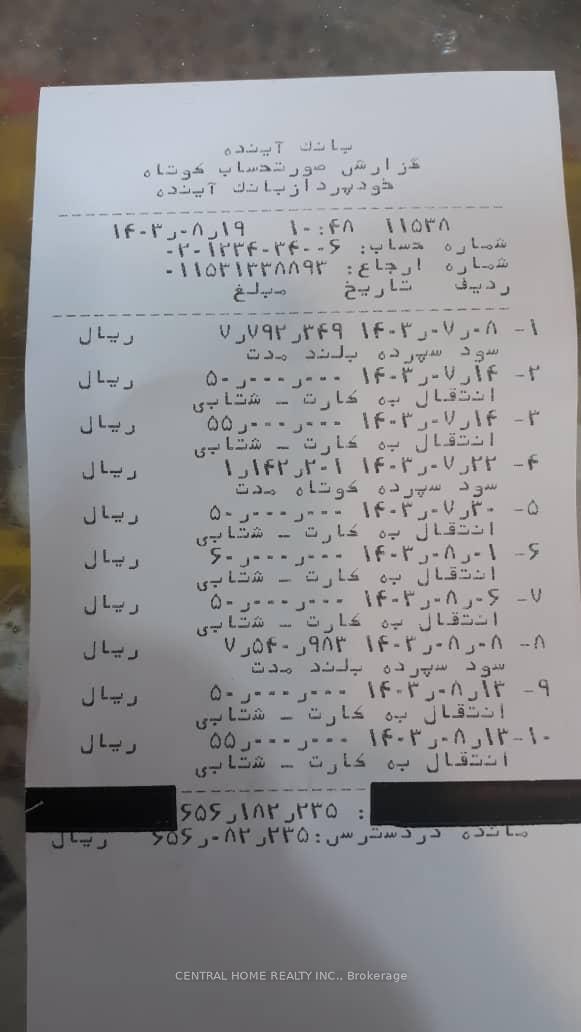 بانك آینده
گزارش صورتحساب کوتاه
خودپردازبانك آینده
۱۴۰۳ر۰۸ر۱۹ ۱۰:۴۸ ۱۱۵۳۸
شماره حساب: ۰۲۰۱۲۳۴۰۳۴۰۰۶
شماره ارجاع: ۰۱۱۵۳۱۳۳۸۸۹۳
ردیف تاریخ مبلغ
۱- ۱۴۰۳ر۰۷ر۰۸ ۷ر۷۹۲ر۳۴۹ ریال
سود سپرده بلند مدت
۲- ۱۴۰۳ر۰۷ر۱۴ ۵۰ر۰۰۰ر۰۰۰ ریال
انتقال به کارت - شتابی
۳- ۱۴۰۳ر۰۷ر۱۴ ۵۵ر۰۰۰ر۰۰۰ ریال
انتقال به کارت - شتابی
۴- ۱۴۰۳ر۰۷ر۲۲ ۱ر۱۴۲ر۲۰۱ ریال
سود سپرده کوتاه مدت
۵- ۱۴۰۳ر۰۷ر۳۰ ۵۰ر۰۰۰ر۰۰۰ ریال
انتقال به کارت - شتابی
۶- ۱۴۰۳ر۰۸ر۰۱ ۶۰ر۰۰۰ر۰۰۰ ریال
انتقال به کارت - شتابی
۷- ۱۴۰۳ر۰۸ر۰۶ ۵۰ر۰۰۰ر۰۰۰ ریال
انتقال به کارت - شتابی
۸- ۱۴۰۳ر۰۸ر۰۸ ۷ر۵۴۰ر۹۸۳ ریال
سود سپرده بلند مدت
۹- ۱۴۰۳ر۰۸ر۱۳ ۵۰ر۰۰۰ر۰۰۰ ریال
انتقال به کارت - شتابی
۱۰- ۱۴۰۳ر۰۸ر۱۳ ۵۵ر۰۰۰ر۰۰۰ ریال
انتقال به کارت - شتابی
: ۶۵۶ر۱۸۲ر۲۳۵
مانده دردسترس: ۶۵۶ر۰۸۲ر۲۳۵ ریال
CENTRAL HOME REALTY INC., Brokerage